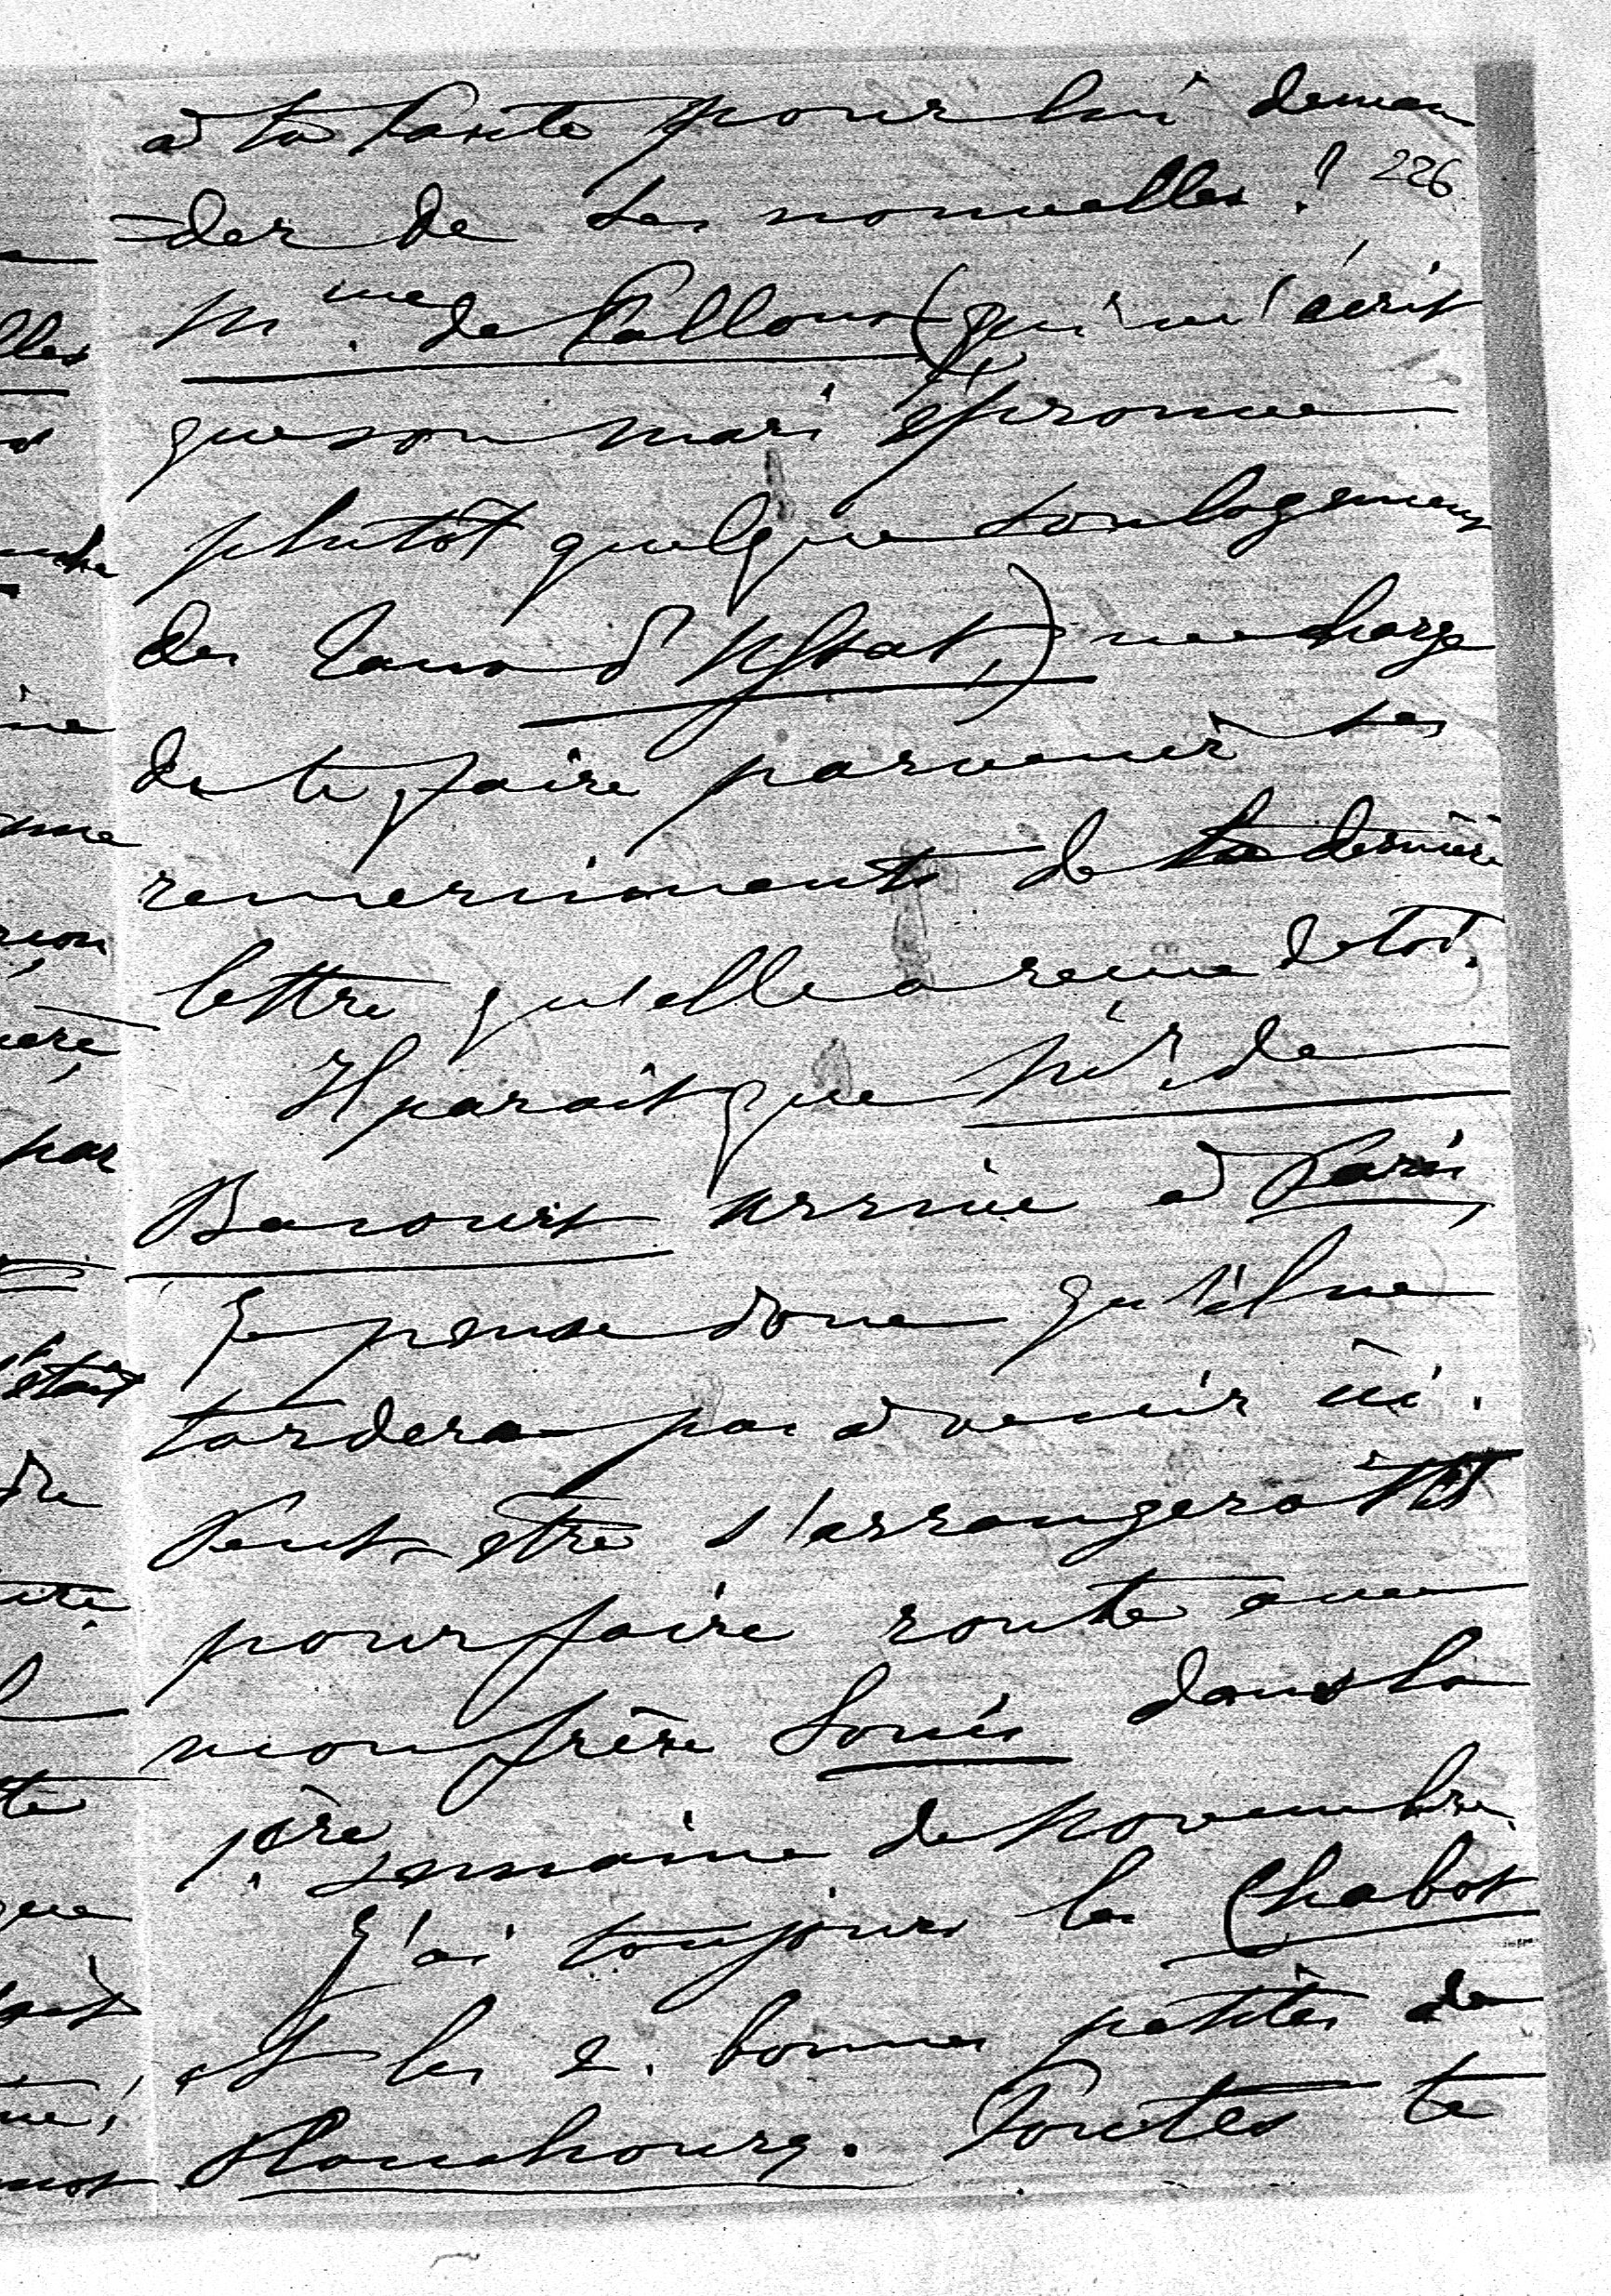 à ta tante pour lui deman
=der de ses nouvelles! 226
Mme. de Falloux (qui m'écrit
que son mari éprouve
plutôt quelque soulagement
des Eaux d'Ussat,) me charge
de te faire parvenir ses
remerciments de ta dernière
lettre qu'elle a reçue de toi.
Il parait que Mr. de
Bacourt arrive à Paris,
Je pense donc qu'il ne
tardera pas à venir ici.
Peut-être s'arrangera t'il
pour faire route avec
mon frère Louis dans la
1ère semaine de Novembre,
J'ai toujours les Chabot
et les 2. bonnes petites de
. Toutes te